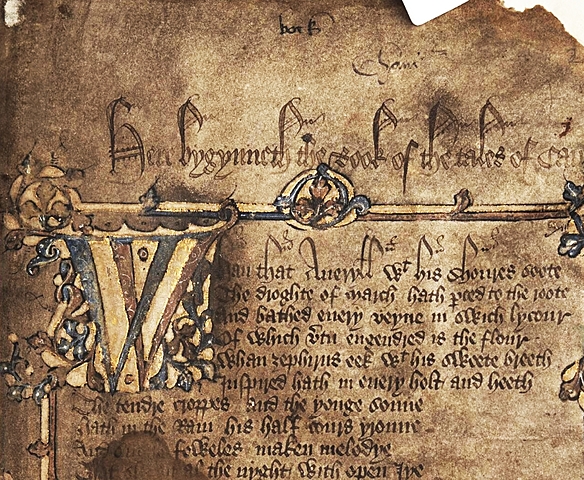 Here bygynneth the Book of the tales of Cau
Whan that Aueryll wt his shoures soote
The droghte of march hath pced to the roote
And bathed euery veyne in swich lycour
Of which vtu engendred is the flour
Whan zephirus eek wt his sweete breeth
Inspired hath in euery holt and heeth
The tendre croppes and the yonge sonne
hath in the Ram his half cours yronne
And foweles maken melodye
al the nyght with open Iye